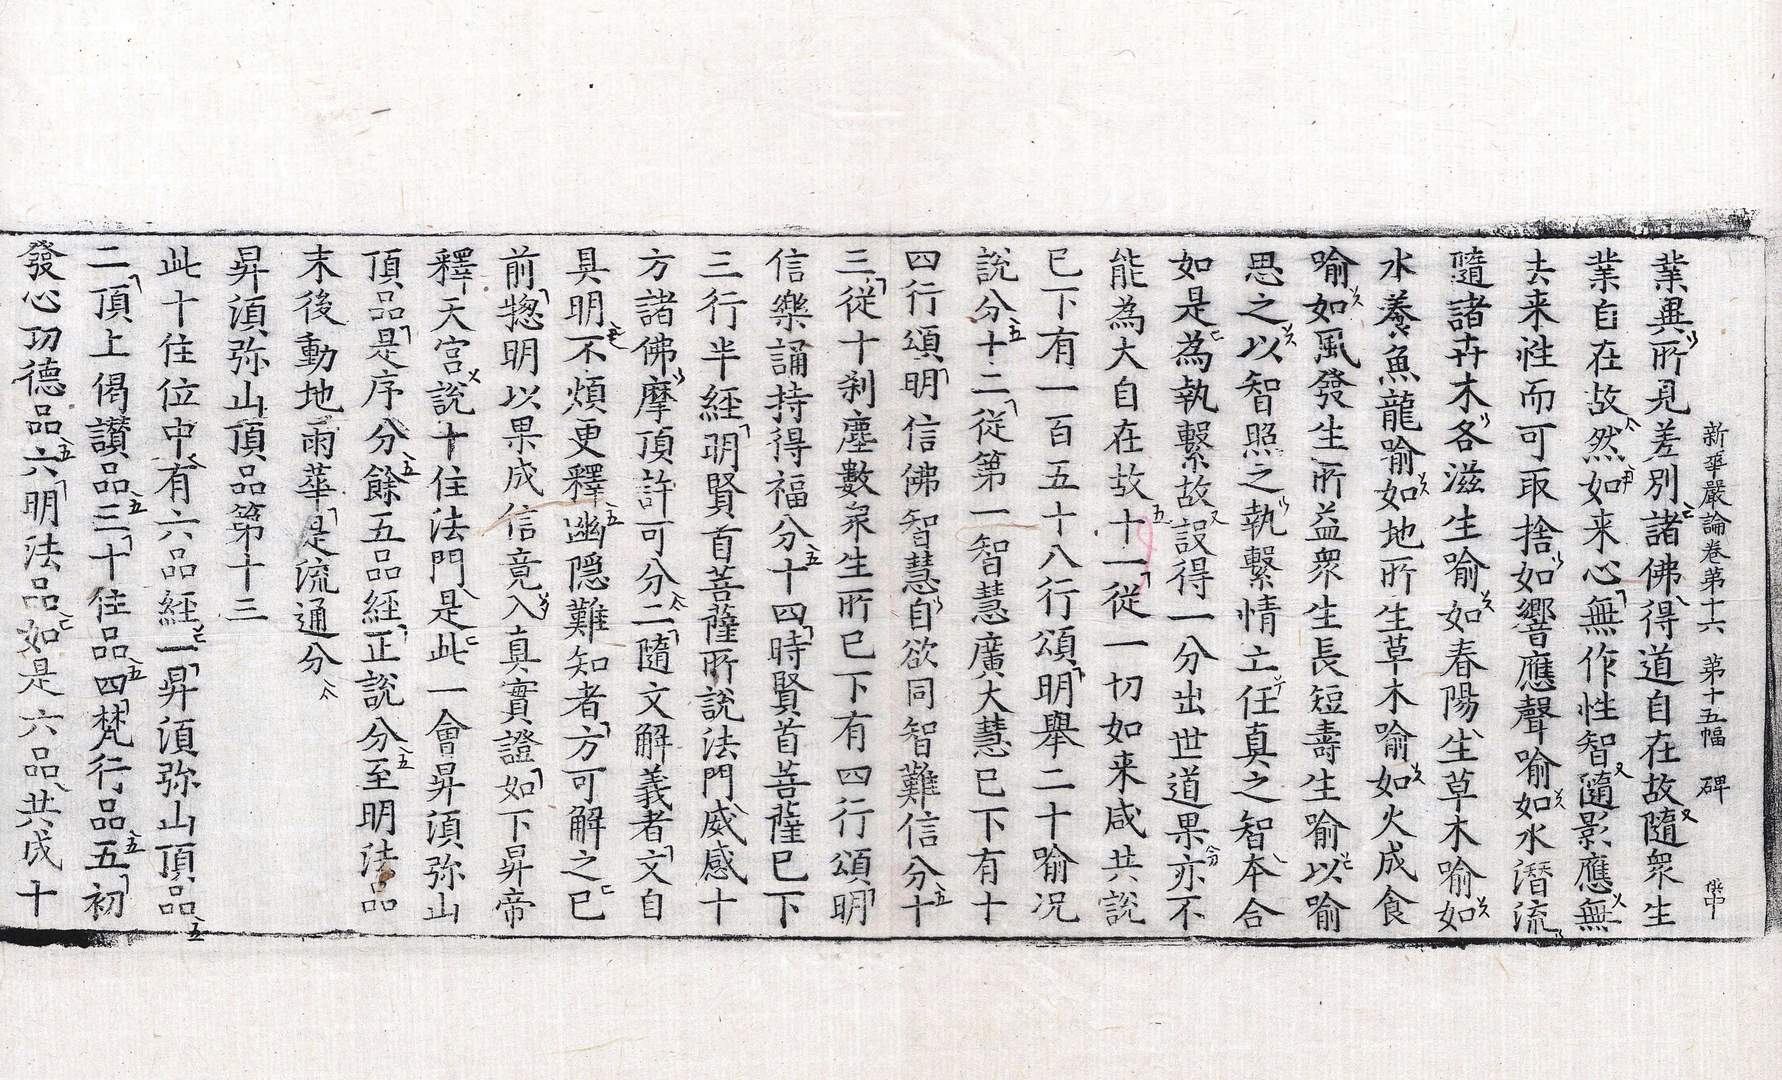 新華嚴論卷第十六　第十五幅　碑
業異所見差別諸佛得道自在故隨衆生
業自在故然如来心無作性智隨影應無
去来性而可取捨如響應聲喻如水潛流
隨諸卉木各滋生喻如春陽生草木喻如
水養魚龍喻如地所生草木喻如火成食
喻如風發生所益衆生長短壽生喻以喻
思之以智照之執繫情亡任真之智本合
如是為執繫故設得一分出世道果亦不
能為大自在故十一從一切如来咸共說
已下有一百五十八行頌明舉二十喻况
說分十二從第一智慧廣大慧已下有十
四行頌明信佛智慧自欲同智難信分十
三從十刹塵數衆生所已下有四行頌明
信樂誦持得福分十四時賢首菩薩已下
三行半經明賢首菩薩所說法門威感十
方諸佛摩頂許可分二隨文解義者文自
具明不煩更釋幽隱難知者方可解之已
前揔明以果成信竟入真實證如下昇帝
釋天宮說十住法門是此一會昇須弥山
頂品是序分餘五品經正說分至明法品
末後動地雨華是流通分
昇須弥山頂品第十三
此十住位中有六品經一昇須弥山頂品
二頂上偈讚品三十住品四梵行品五初
發心功德品六明法品如是六品共成十